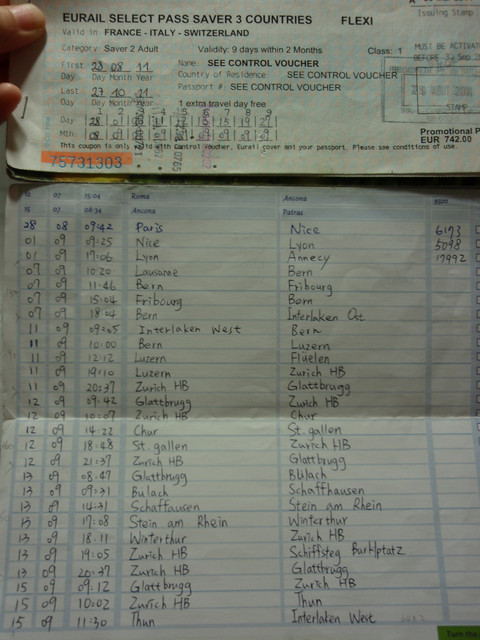 Issuing Stamp
EURAIL SELECT PASS SAVER 3 COUNTRIES FLEXI
Valid in FRANCE - ITALY - SWITZERLAND
Category: Saver 2 Adult Validity: 9 days within 2 Months Class: 1
MUST BE ACTIVA
First 28 08 11 Name: SEE CONTROL VOUCHER
Day Day Month Year Country of Residence SEE CONTROL VOUCHER
Last 27 10 11 Passport #: SEE CONTROL VOUCHER
Day Day Month Year 1 extra travel day free
STAMP
1 2 3 4 5 6 7 8 9
Day 28 01
Mth 08 09
Promotional P
EUR 742.00
This coupon is only valid with Control Voucher, Eurail cover and your passport. Please see conditions of use.
75731303
07 15:04 Roma Ancona
07 08:34 Ancona Patras
28 08 09:42 Paris Nice 6173
01 09 09:25 Nice Lyon 5098
01 09 17:06 Lyon Annecy 17992
07 09 10:20 Lausanne Bern
07 09 11:46 Bern Fribourg
07 09 15:04 Fribourg Bern
07 09 18:04 Bern Interlaken Ost
11 09 09:05 Interlaken West Bern
11 09 10:00 Bern Luzern
11 09 12:12 Luzern Flüelen
11 09 19:10 Luzern Zurich HB
11 09 20:37 Zurich HB Glattbrugg
12 09 09:42 Glattbrugg Zurich HB
12 09 10:07 Zurich HB Chur
12 09 14:22 Chur St. gallen
12 09 18:48 St. gallen Zurich HB
12 09 21:37 Zurich HB Glattbrugg
13 09 08:47 Glattbrugg Bülach
13 09 09:31 Bülach Schaffhausen
13 09 14:31 Schaffausen Stein am Rhein
13 09 17:08 Stein am Rhein Winterthur
13 09 18:11 Winterthur Zurich HB
13 09 19:05 Zurich HB Schiffsteg Burhlptatz
13 09 20:37 Zurich HB Glattbrugg
15 09 09:12 Glattbrugg Zurich HB
15 09 10:02 Zurich HB Thun
15 09 11:30 Thun Interlaken West
Turn the